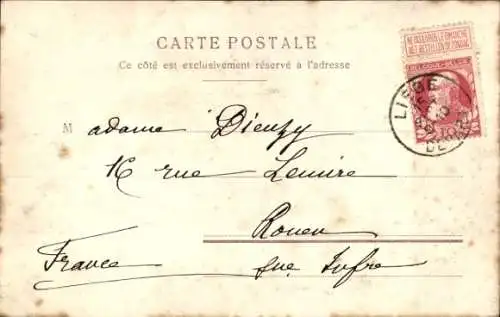 NE PAS LIVRER LE DIMANCHE
NIET BESTELLEN OP ZONDAG
CARTE POSTALE
Ce côté est exclusivement réservé à l'adresse
BELGIQUE-BELGIË
LIEGE
10
M adame Dieupy
16 rue Lemire
Rouen
France
Sne Infre